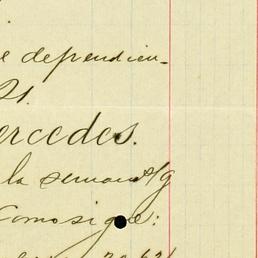 e dependien-
21.
ercedes.
la semana s/g
Como sigue: